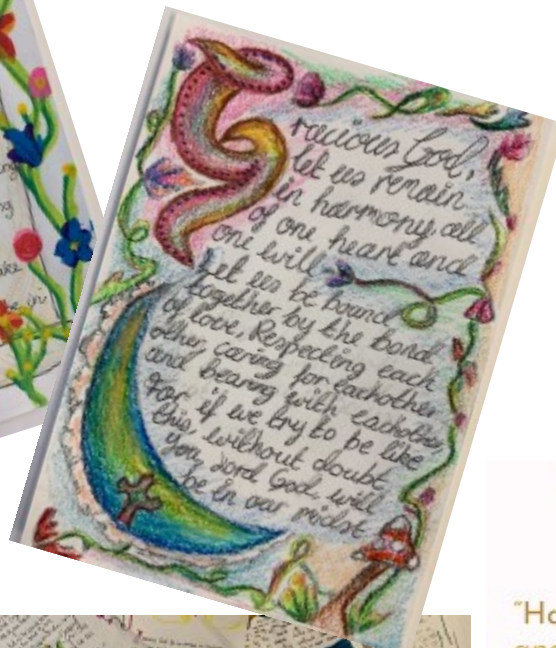 Gracious God,
let us remain
in harmony all
of one heart and
one will
Let us be bound
together by the bond
of love. Respecting each
other, caring for eachother
and bearing with eachother
For if we try to be like
this, without doubt
You Lord God, will
be in our midst.
ing
ake
e in
"Ho